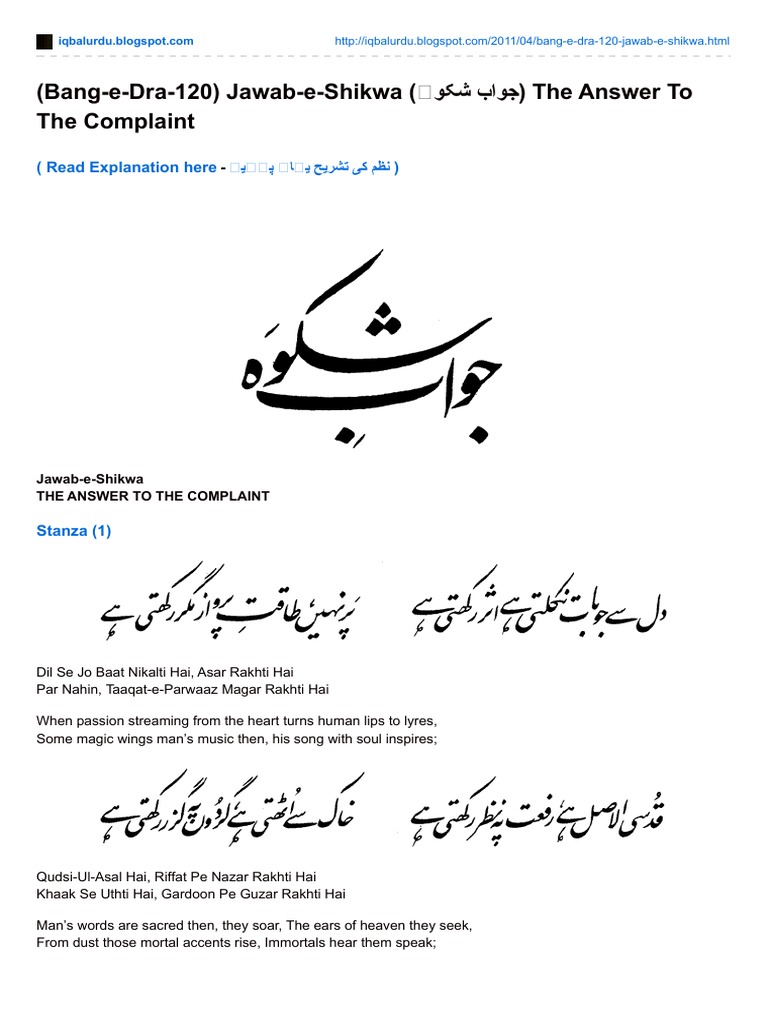 iqbalurdu.blogspot.com http://iqbalurdu.blogspot.com/2011/04/bang-e-dra-120-jawab-e-shikwa.html
(Bang-e-Dra-120) Jawab-e-Shikwa (جواب شکو) The Answer To
The Complaint
( Read Explanation here - نظم کی تشریح ی ا پ ی )
جوابِ شکوَہ
Jawab-e-Shikwa
THE ANSWER TO THE COMPLAINT
Stanza (1)
دل سے جو بات نکلتی ہے اثر رکھتی ہے پَر نہیں، طاقتِ پرواز مگر رکھتی ہے
Dil Se Jo Baat Nikalti Hai, Asar Rakhti Hai
Par Nahin, Taaqat-e-Parwaaz Magar Rakhti Hai
When passion streaming from the heart turns human lips to lyres,
Some magic wings man’s music then, his song with soul inspires;
قُدسی الاصل ہے، رفعت پہ نظر رکھتی ہے خاک سے اُٹھتی ہے، گردُوں پہ گزر رکھتی ہے
Qudsi-Ul-Asal Hai, Riffat Pe Nazar Rakhti Hai
Khaak Se Uthti Hai, Gardoon Pe Guzar Rakhti Hai
Man’s words are sacred then, they soar, The ears of heaven they seek,
From dust those mortal accents rise, Immortals hear them speak;